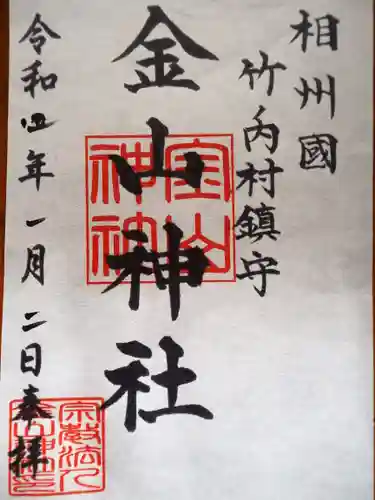 相州國
竹ノ内村鎮守
金山神社
令和四年一月二日奉拝
宗教法人